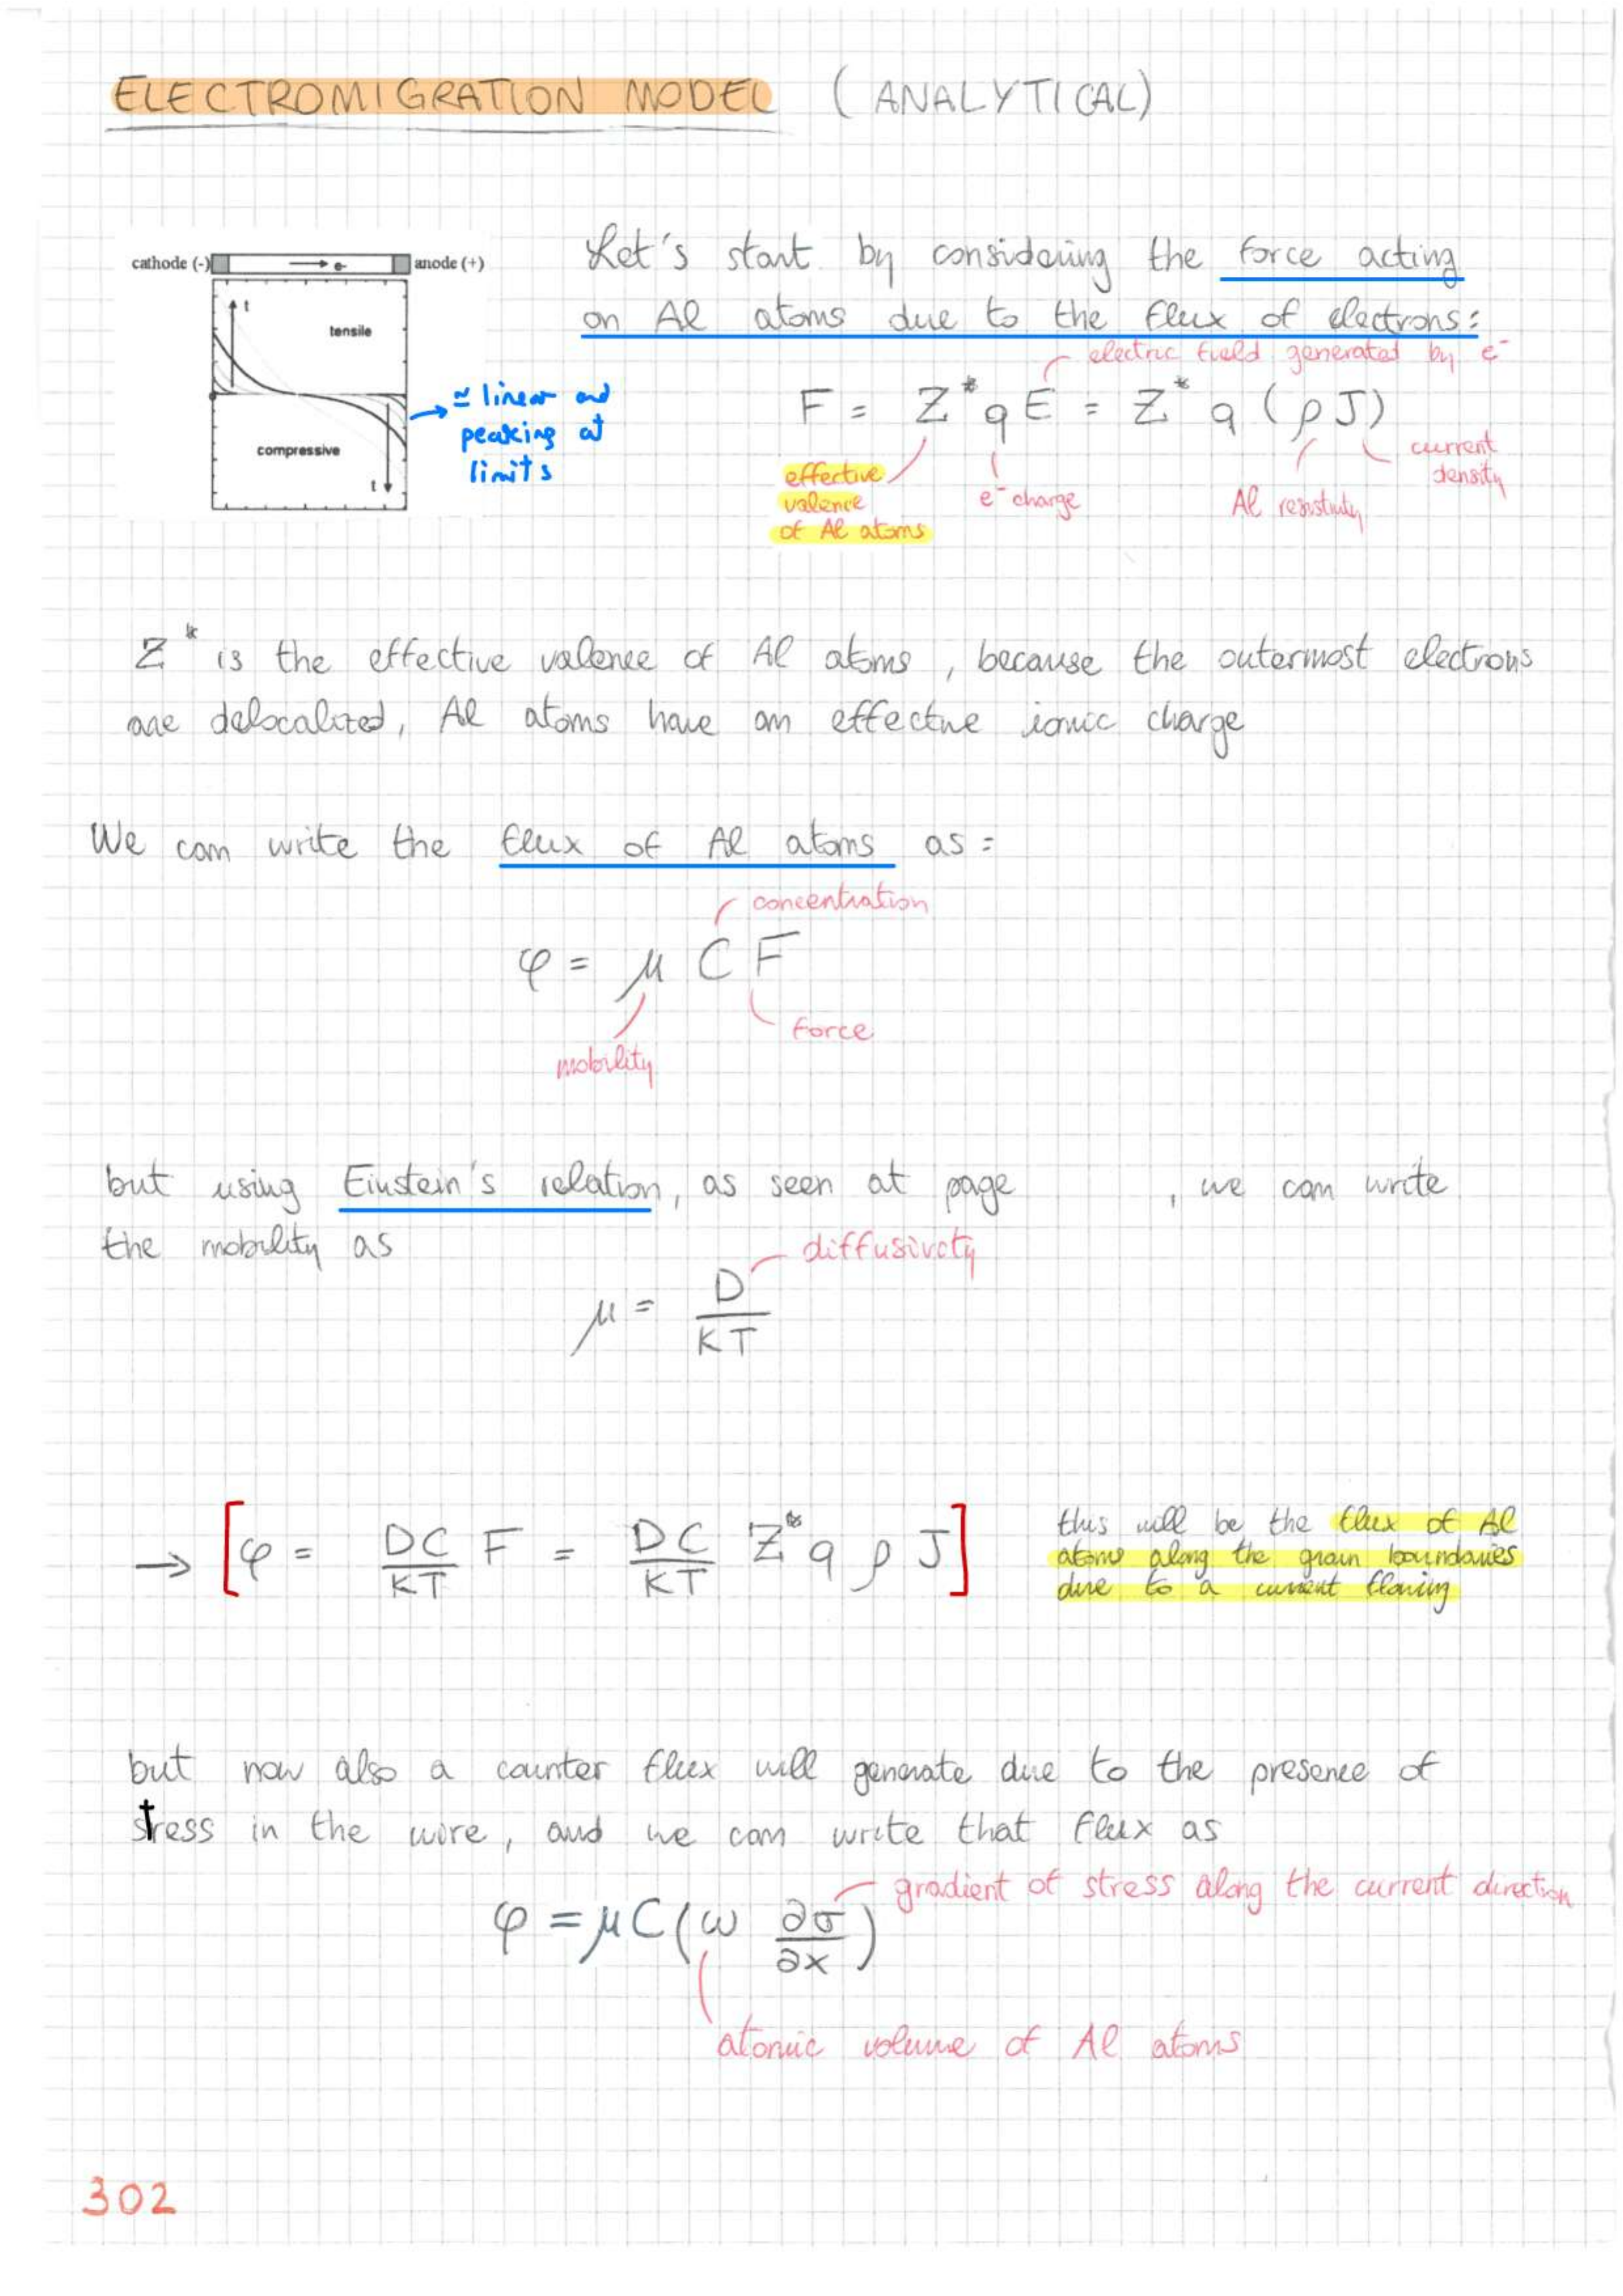 ELECTROMIGRATION MODEL (ANALYTICAL)
cathode (-)
e-
anode (+)
t
tensile
compressive
t
≃ linear and
peaking at
limits
Let's start by considering the force acting
on Al atoms due to the flux of electrons:
electric field generated by e⁻
F = Z* q E = Z* q (ρ J)
effective
valence
of Al atoms
e⁻ charge
Al resistivity
current
density
Z* is the effective valence of Al atoms, because the outermost electrons
are delocalized, Al atoms have an effective ionic charge
We can write the flux of Al atoms as:
concentration
φ = μ C F
mobility
force
but using Einstein's relation, as seen at page , we can write
the mobility as
diffusivity
μ = D / KT
→ [φ = DC/KT F = DC/KT Z* q ρ J]
this will be the flux of Al
atoms along the grain boundaries
due to a current flowing
but now also a counter flux will generate due to the presence of
stress in the wire, and we can write that flux as
gradient of stress along the current direction
φ = μC(ω ∂σ/∂x)
atomic volume of Al atoms
302